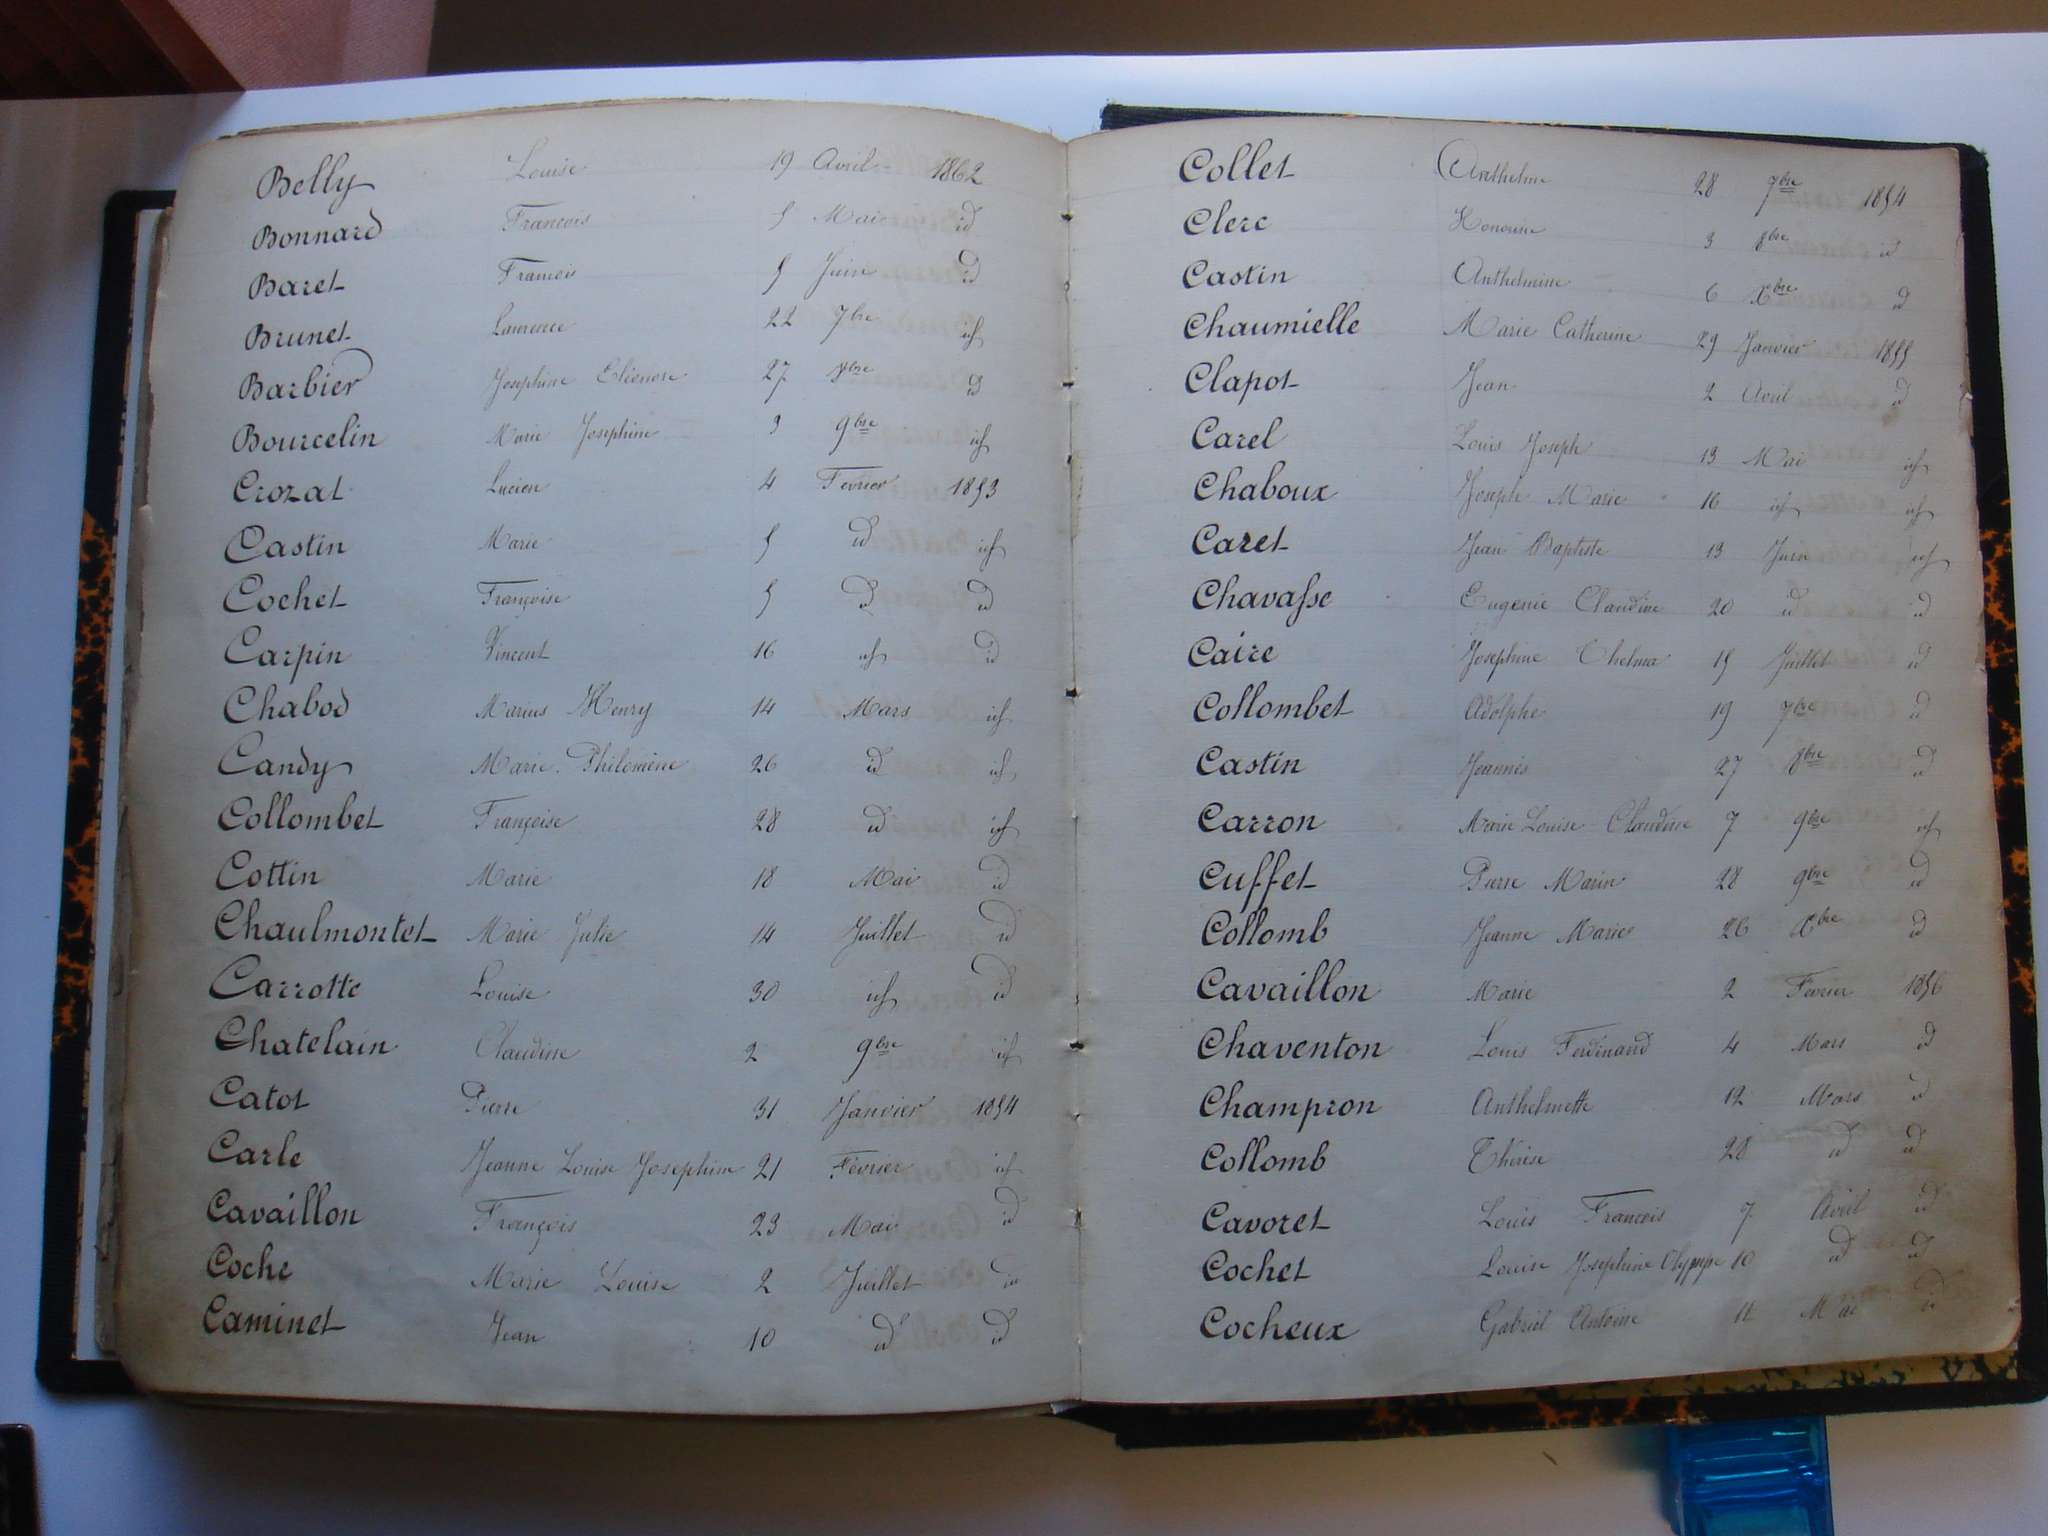 Belly Louise 19 Avril 1862
Bonnard Francois 5 Mai id
Baret Francois 5 Juin id
Brunet Laurence 22 7bre id
Barbier Josephine Elienore 27 8bre id
Bourcelin Marie Josephine 3 9bre id
Crozat Lucien 4 Fevrier 1853
Castin Marie 5 id id
Cochet Françoise 5 id id
Carpin Vincent 16 id id
Chabod Marius Henry 14 Mars id
Candy Marie Philomène 26 id id
Collombet Françoise 28 id id
Cottin Marie 18 Mai id
Chaulmontet Marie Julie 14 Juillet id
Carrotte Louise 30 id id
Chatelain Claudine 2 9bre id
Catot Pierre 31 Janvier 1854
Carle Jeanne Louise Josephine 21 Février id
Cavaillon François 23 Mai id
Coche Marie Louise 2 Juillet id
Caminet Jean 10 id id
Collet Anthelme 28 7bre 1854
Clerc Honorine 3 8bre id
Castin Anthelmine 6 Xbre id
Chaumielle Marie Catherine 29 Janvier 1855
Clapot Jean 2 Avril id
Carel Louis Joseph 13 Mai id
Chaboux Joseph Marie 16 id id
Caret Jean Baptiste 13 Juin id
Chavasse Eugenie Claudine 20 id id
Caire Josephine Thelma 15 Juillet id
Collombet Adolphe 19 7bre id
Castin Jeannès 27 8bre id
Carron Marie Louise Claudine 7 9bre id
Cuffet Pierre Marin 28 9bre id
Collomb Jeanne Marie 26 Xbre id
Cavaillon Marie 2 Fevrier 1856
Chaventon Louis Ferdinand 4 Mars id
Champron Anthelmette 12 Mars id
Collomb Thérèse 28 id id
Cavoret Louis Francois 7 Avril id
Cochet Louise Josephine Olympe 10 id id
Cocheux Gabriel Antoine 11 Mai id